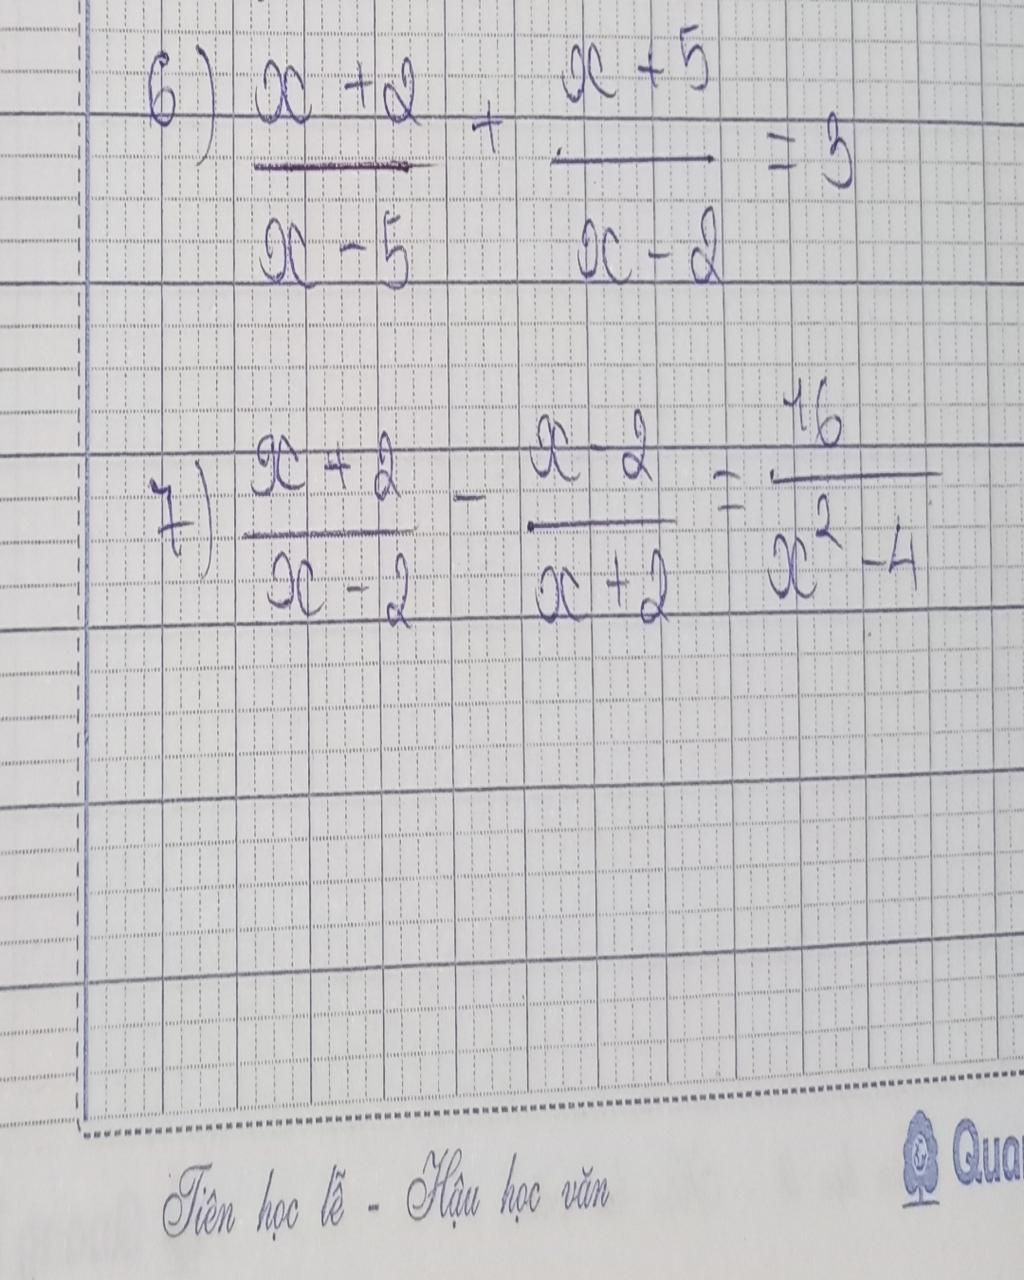 6) x + 2 / x - 5 + x + 5 / x - 2 = 3
7) x + 2 / x - 2 - x - 2 / x + 2 = 16 / x² - 4
Tiên học lễ - Hậu học văn